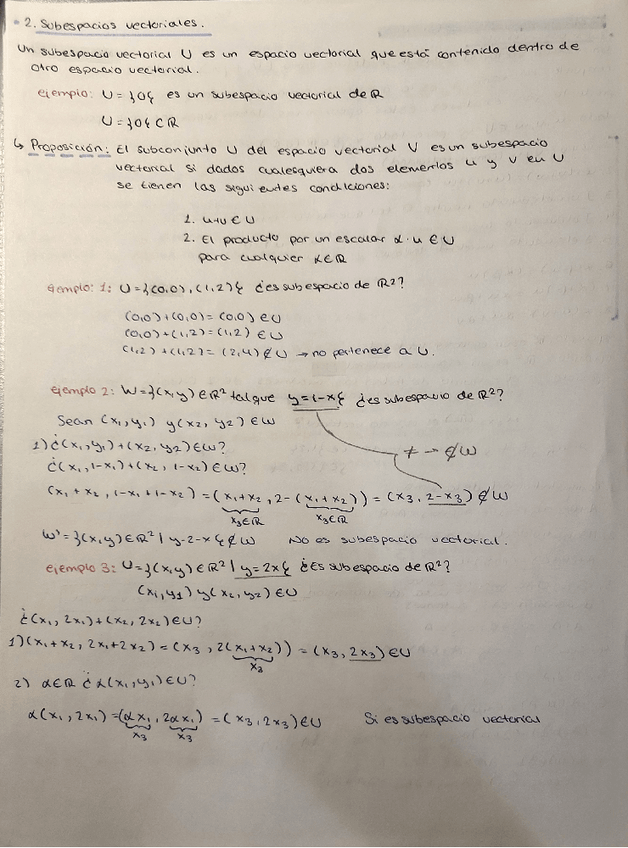 2. Subespacios vectoriales.
Un subespacio vectorial U es un espacio vectorial que está contenido dentro de
otro espacio vectorial.
ejemplo: U = {0} es un subespacio vectorial de ℝ
U = {0} ⊂ ℝ
↳ Proposición: El subconjunto U del espacio vectorial V es un subespacio
vectorial si dados cualesquiera dos elementos u y v en U
se tienen las siguientes condiciones:
1. u+v ∈ U
2. El producto por un escalar α · u ∈ U
para cualquier α ∈ ℝ
ejemplo: 1: U = {(0,0), (1,2)} ¿es subespacio de ℝ²?
(0,0) + (0,0) = (0,0) ∈ U
(0,0) + (1,2) = (1,2) ∈ U
(1,2) + (1,2) = (2,4) ∉ U → no pertenece a U.
ejemplo 2: W = {(x,y) ∈ ℝ² tal que y = 1-x} ¿es subespacio de ℝ²?
Sean (x₁, y₁) y (x₂, y₂) ∈ W
1) ¿(x₁, y₁) + (x₂, y₂) ∈ W? ≠ → ∉ W
¿(x₁, 1-x₁) + (x₂, 1-x₂) ∈ W?
(x₁ + x₂, 1-x₁ + 1-x₂) = (x₁+x₂, 2-(x₁+x₂)) = (x₃, 2-x₃) ∉ W
x₃∈ℝ x₃∈ℝ
W' = {(x,y) ∈ ℝ² | y-2-x} ∉ W No es subespacio vectorial.
ejemplo 3: U = {(x,y) ∈ ℝ² | y = 2x} ¿Es subespacio de ℝ²?
(x₁, y₁) y (x₂, y₂) ∈ U
¿(x₁, 2x₁) + (x₂, 2x₂) ∈ U?
1) (x₁+x₂, 2x₁+2x₂) = (x₃, 2(x₁+x₂)) = (x₃, 2x₃) ∈ U
x₃
2) α∈ℝ ¿α(x₁, y₁) ∈ U?
α(x₁, 2x₁) = (αx₁, 2αx₁) = (x₃, 2x₃) ∈ U Si es subespacio vectorial
x₃ x₃